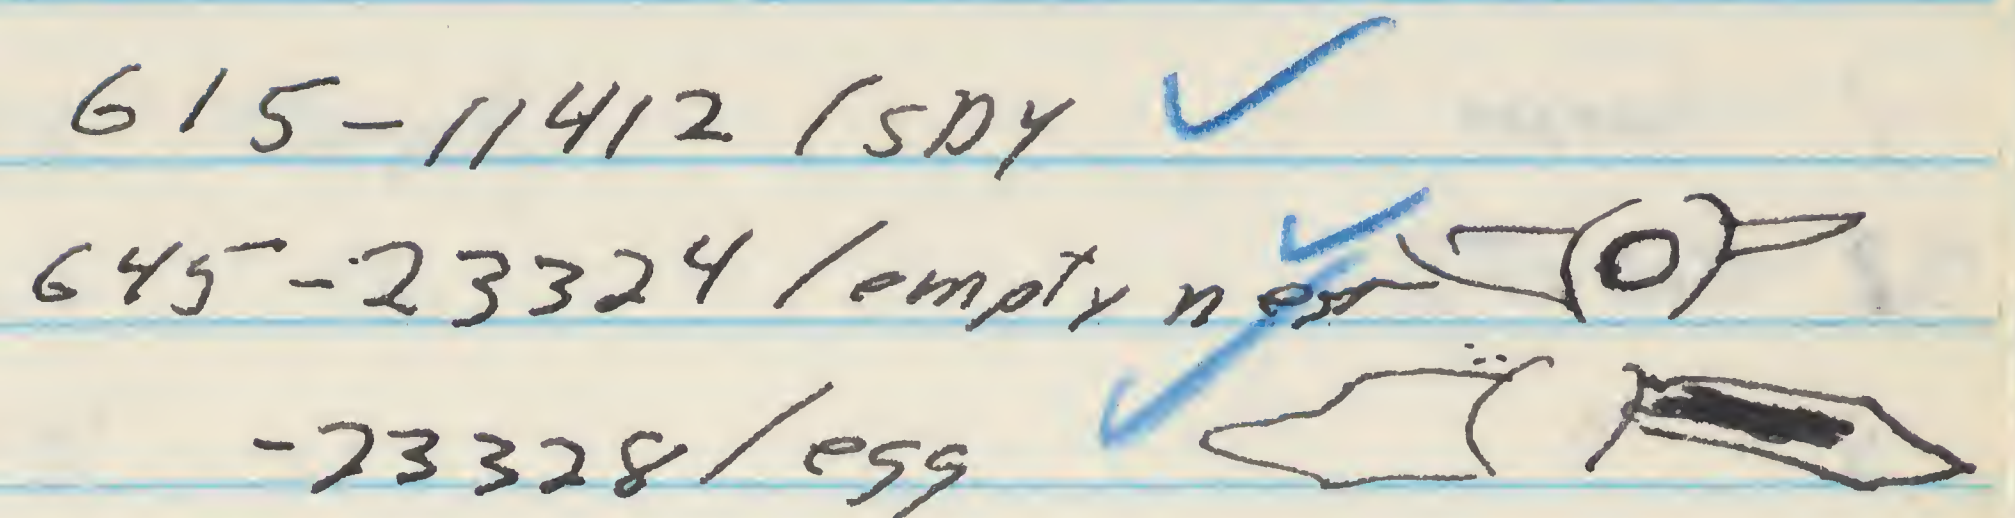 615-11412/SDY
645-23324/empty nest
-23328/egg